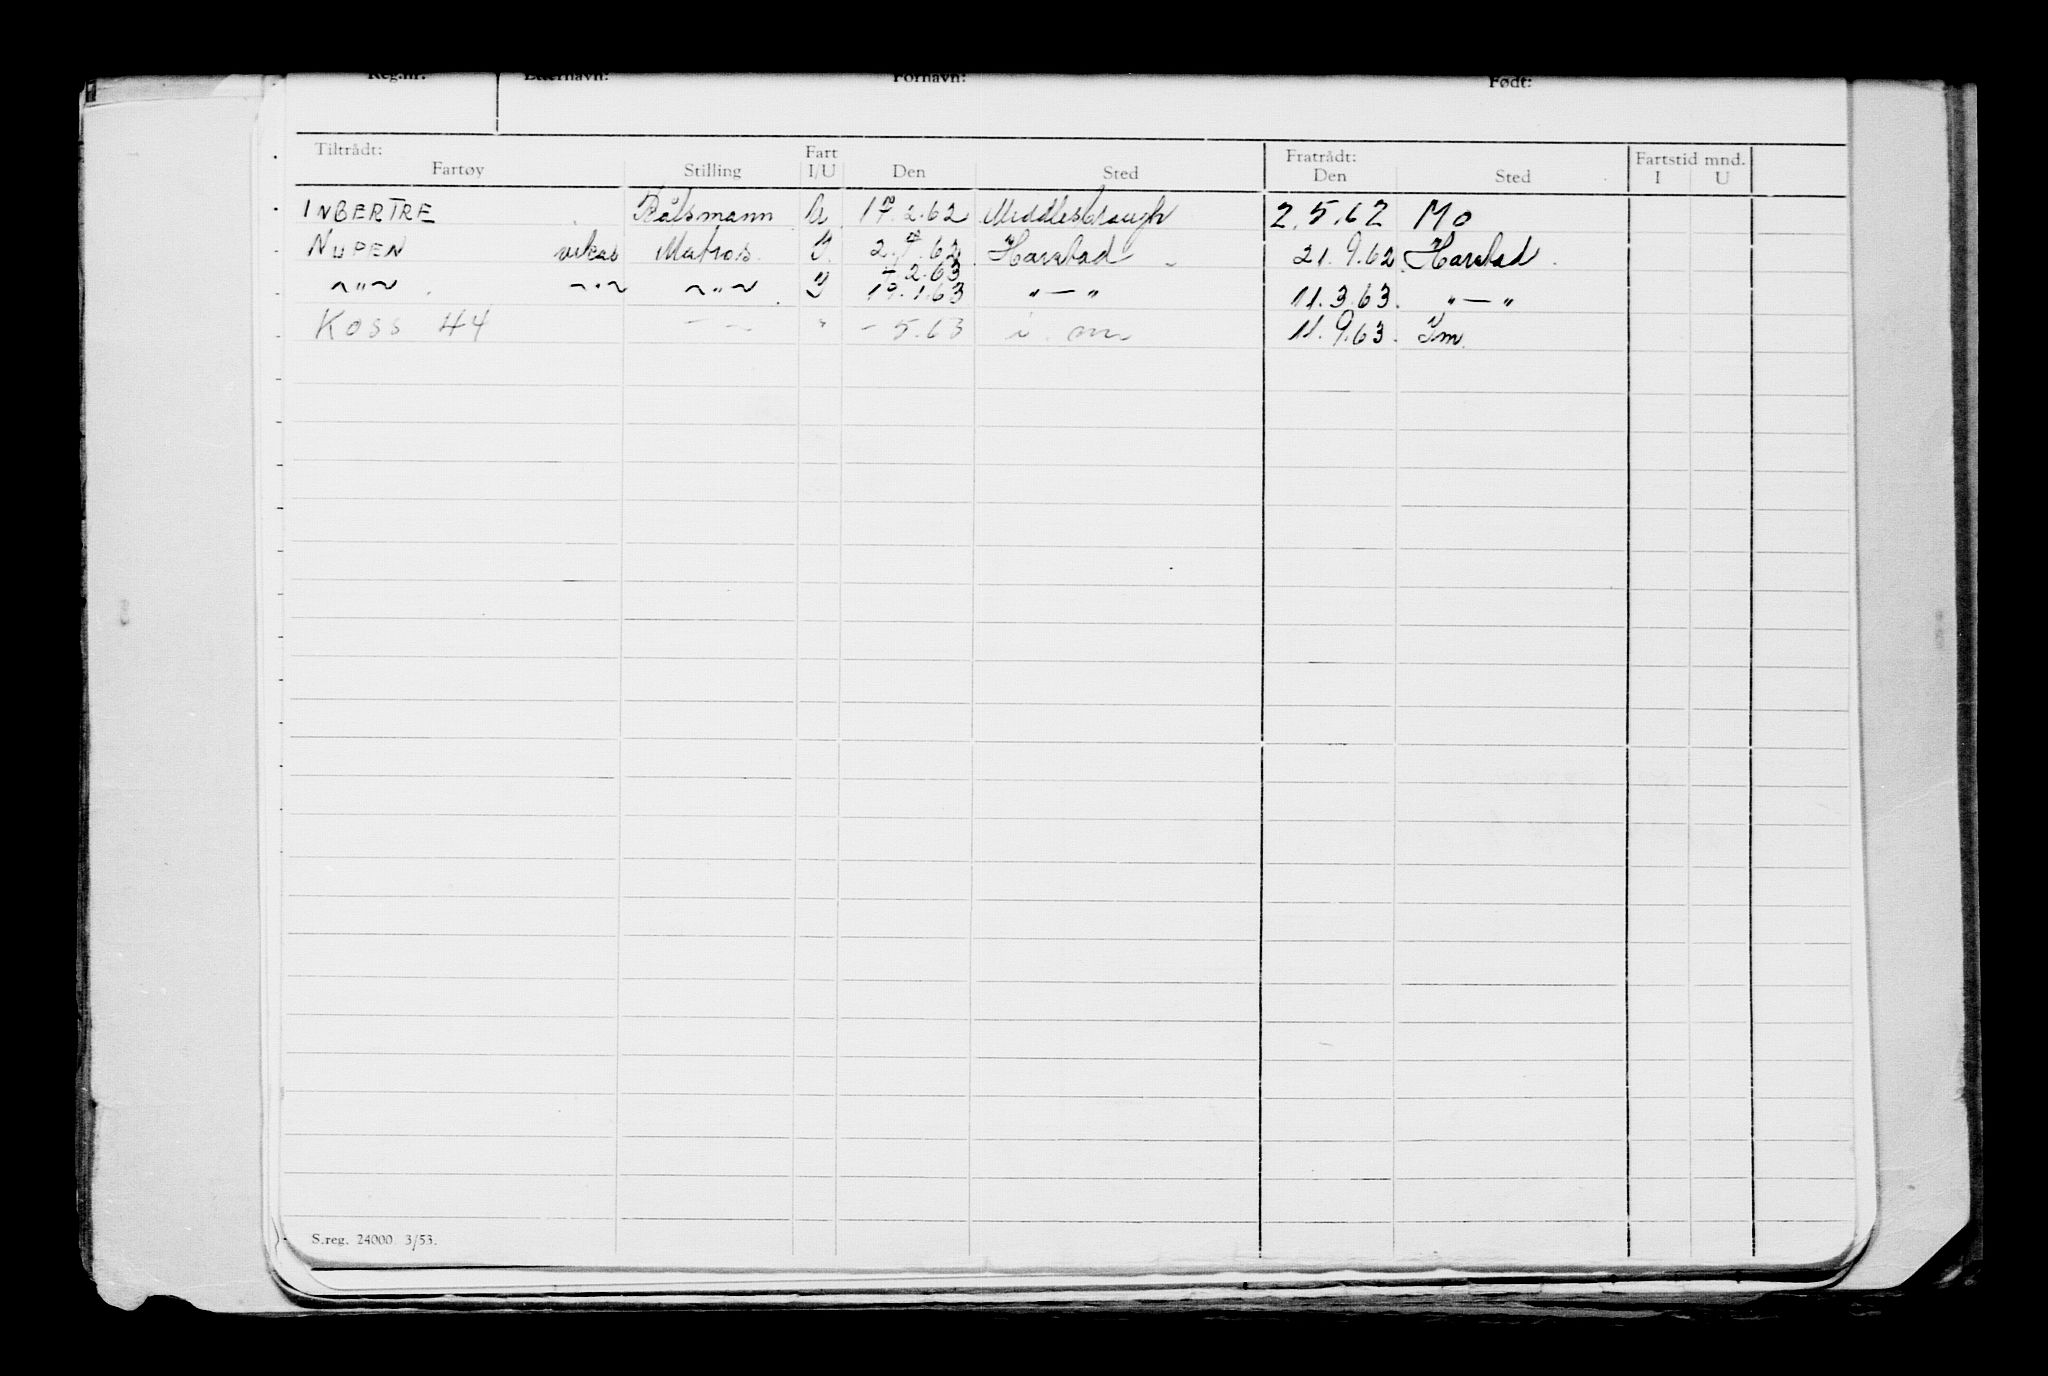 Reg.nr. Etternavn: Fornavn: Født:
Tiltrådt: Fart Fratrådt: Fartstid mnd.
Fartøy Stilling I/U Den Sted Den Sted I U
INBERTRE Båtsmann U 17.2.62 Middlesbrough 2.5.62 Mo
NUPEN vikar Matros I 2. .62 Harstad 21.9.62 Harstad
2.63
~"~ ~"~ ~"~ I 19.1.63 "—" 11.3.63. "—"
KOSS 44 — " - 5.63 i. om 11.9.63. Im.
S.reg. 24000 3/53.